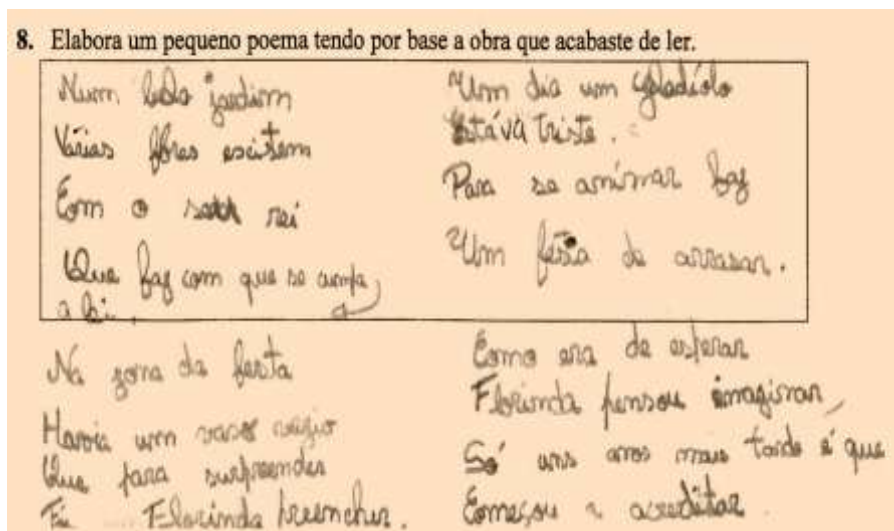 8. Elabora um pequeno poema tendo por base a obra que acabaste de ler.
Num belo jardim
Várias flores escistem
Com o rei
Que faz com que se cumpra
a lei.
Um dia um Gladíolo
Estáva triste.
Para se animar faz
Um festa de arrasar.
Na zona da festa
Havia um vaso vazio
Que para surpreender
Florinda preencher.
Como era de esperar
Florinda pensou imaginar,
Só uns anos mais tarde é que
Começou a acreditar.